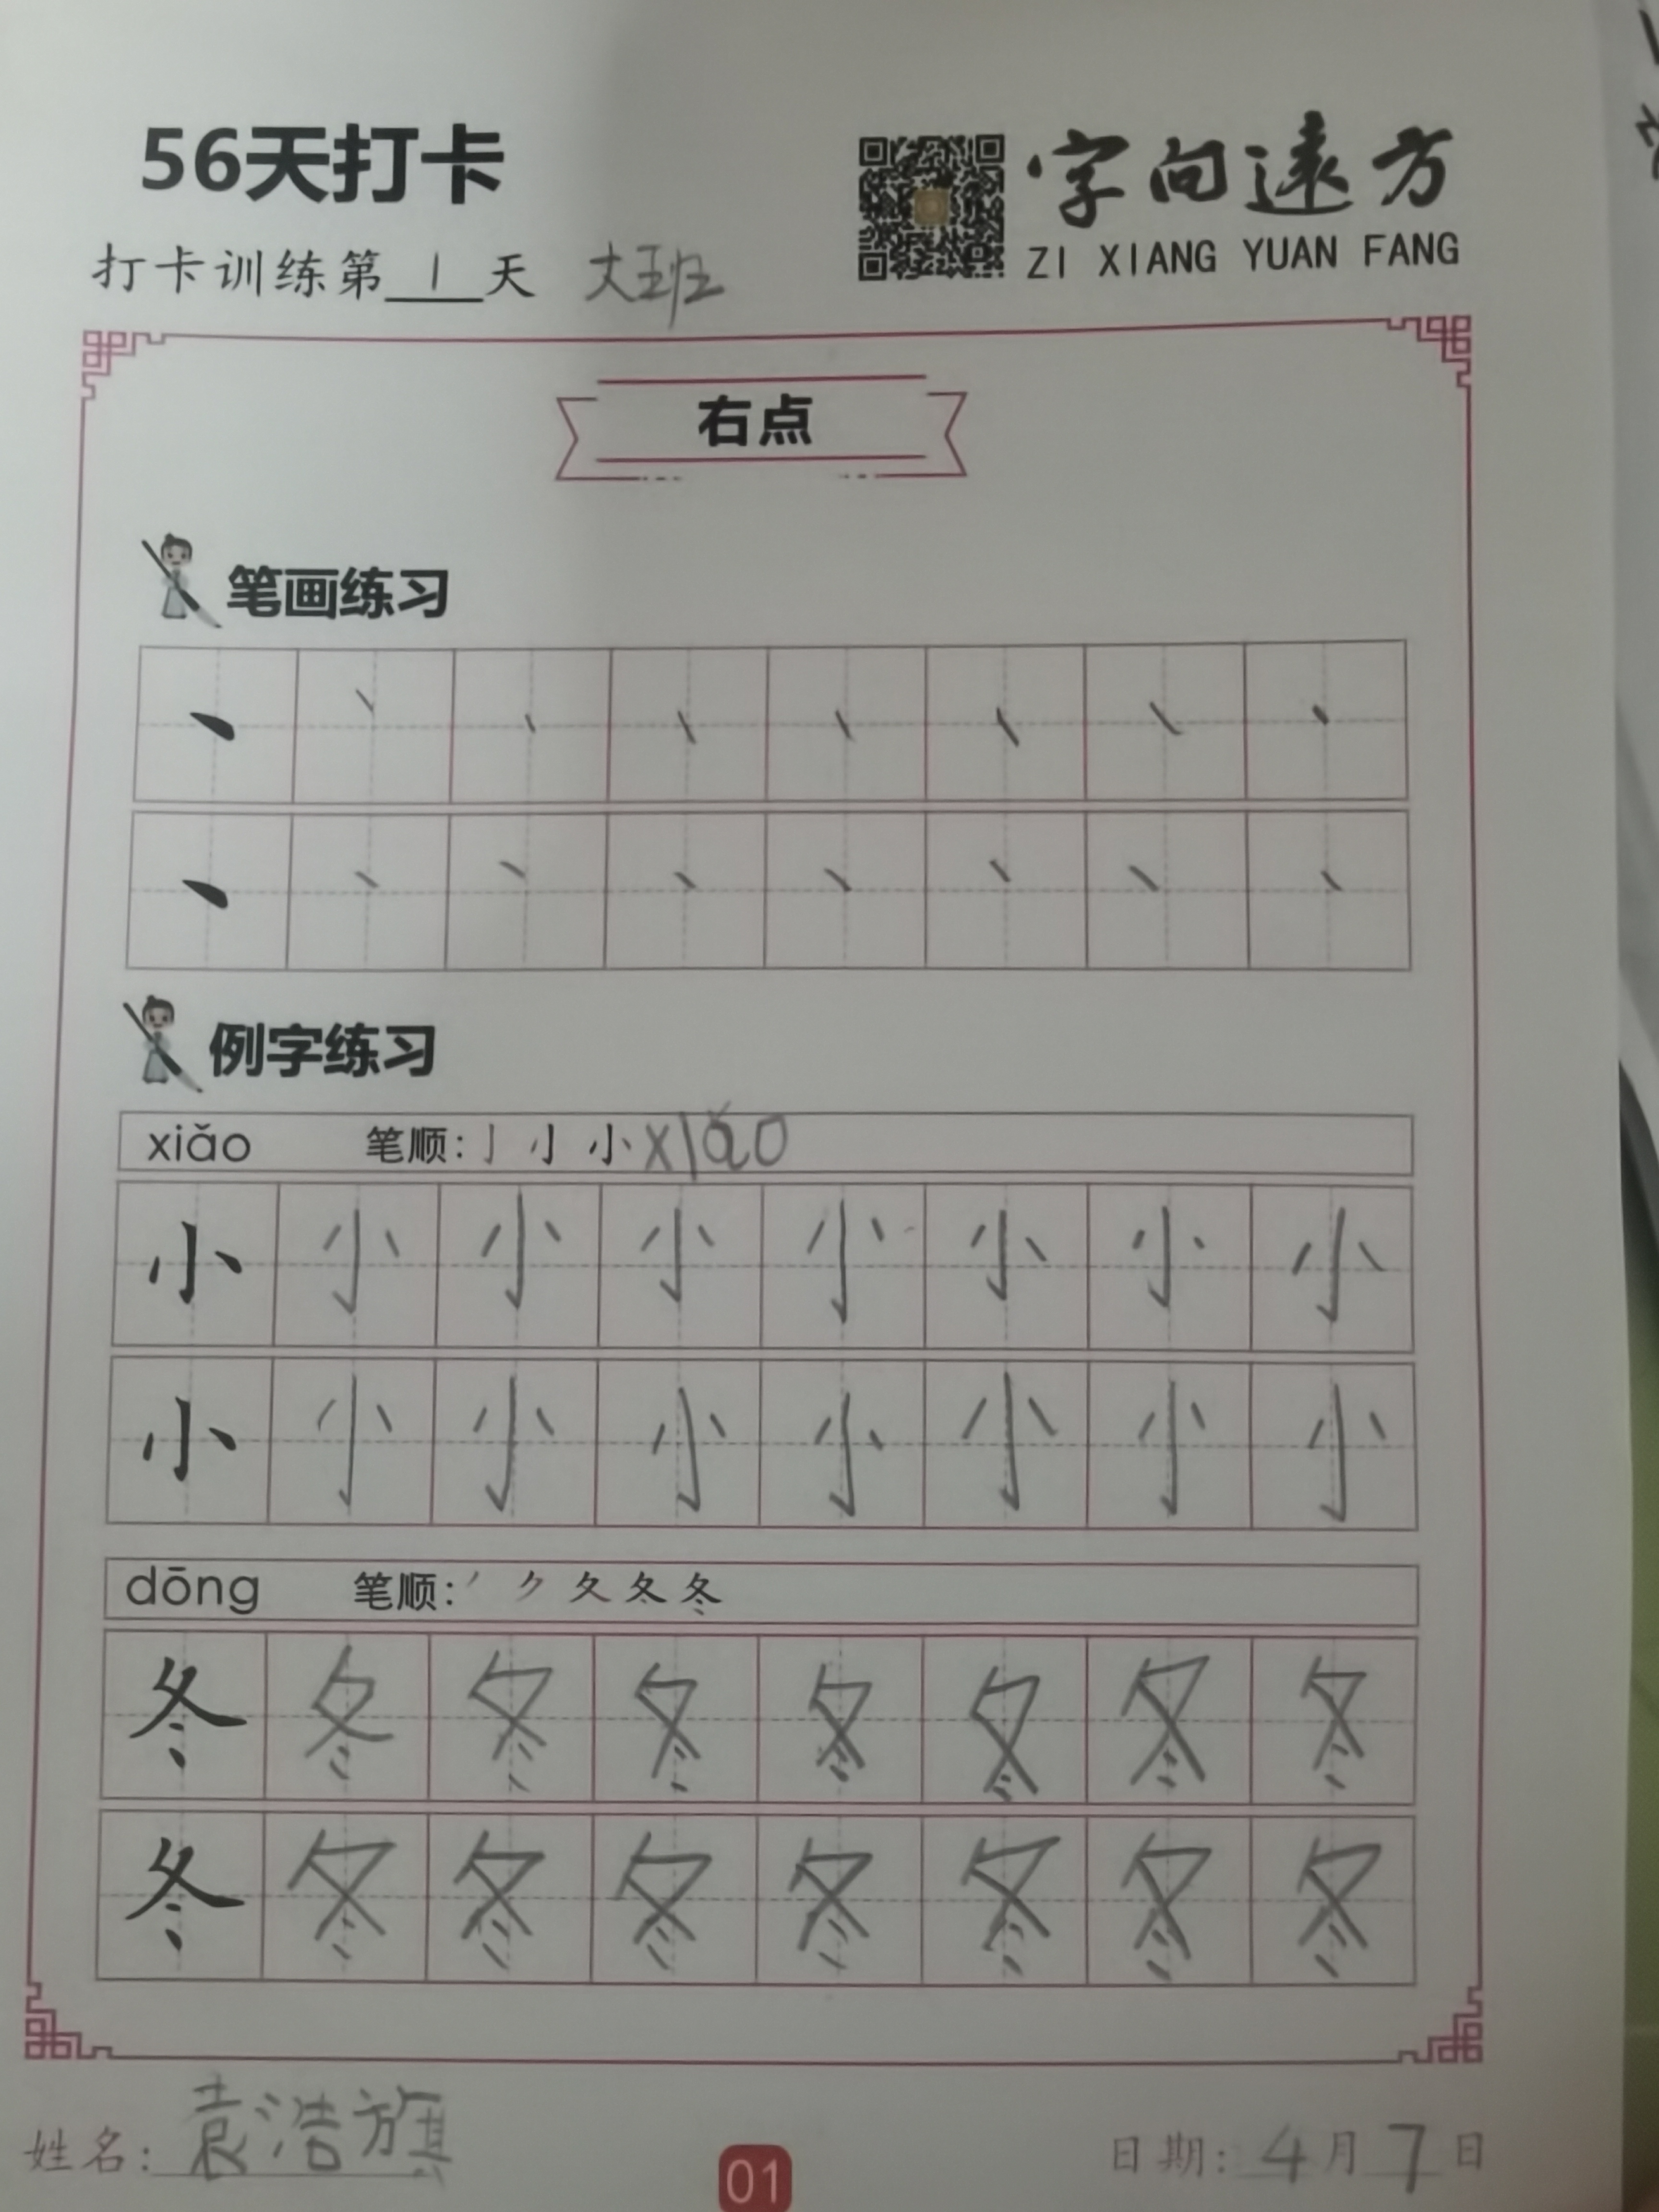 56天打卡
字向遠方
ZI XIANG YUAN FANG
打卡训练第1天 大班
右点
笔画练习
例字练习
xiǎo 笔顺: 小 xiǎo
小 小 小 小 小 小 小 小
小 小 小 小 小 小 小 小
dōng 笔顺: 夂 冬 冬
冬 冬 冬 冬 冬 冬 冬 冬
冬 冬 冬 冬 冬 冬 冬 冬
姓名: 袁浩旗
01
日期: 4月7日